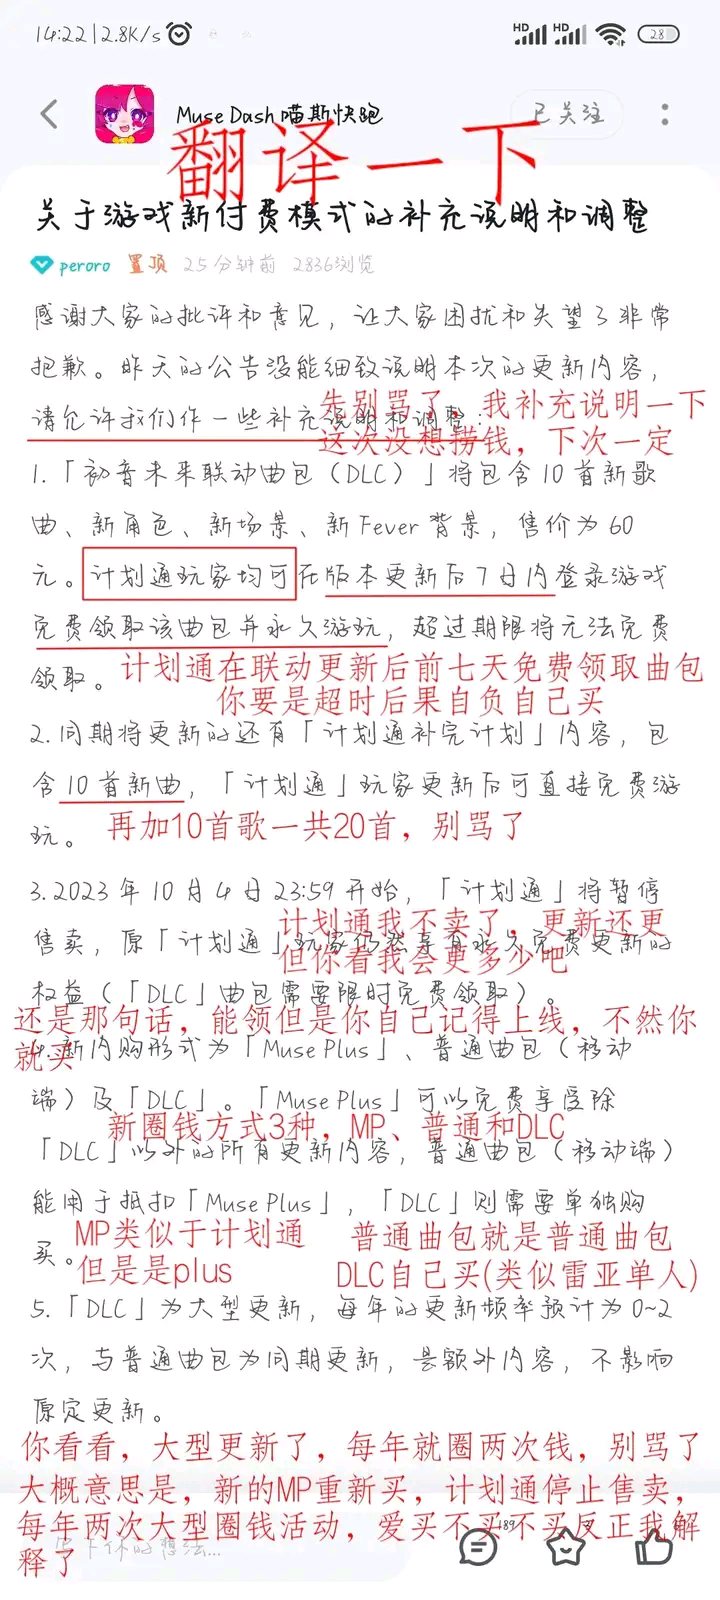 14:22 | 2.8K/s
HD HD 28
Muse Dash喵斯快跑
已关注
翻译一下
关于游戏新付费模式的补充说明和调整
peroro 置顶 25分钟前 2836浏览
感谢大家的批评和意见，让大家困扰和失望了非常
抱歉。昨天的公告没能细致说明本次的更新内容，
请允许我们作一些补充说明和调整：
先别骂了，我补充说明一下
这次没想捞钱，下次一定
1.「初音未来联动曲包（DLC）」将包含10首新歌
曲、新角色、新场景、新Fever背景，售价为60
元。计划通玩家均可在版本更新后7日内登录游戏
免费领取该曲包并永久游玩，超过期限将无法免费
领取。
计划通在联动更新后前七天免费领取曲包
你要是超时后果自负自己买
2.同期将更新的还有「计划通补完计划」内容，包
含10首新曲，「计划通」玩家更新后可直接免费游
玩。
再加10首歌一共20首，别骂了
3.2023年10月4日23:59开始，「计划通」将暂停
售卖，原「计划通」玩家仍然享有永久免费更新的
权益（「DLC」曲包需要限时免费领取）。
计划通我不卖了，更新还更
但你看我会更多少吧
还是那句话，能领但是你自己记得上线，不然你
就买
4.新内购形式为「Muse Plus」、普通曲包（移动
端）及「DLC」。「Muse Plus」可以免费享受除
「DLC」以外的所有更新内容，普通曲包（移动端）
能用于抵扣「Muse Plus」，「DLC」则需要单独购
买。
新圈钱方式3种，MP、普通和DLC
MP类似于计划通
但是是plus
普通曲包就是普通曲包
DLC自己买(类似雷亚单人)
5.「DLC」为大型更新，每年的更新频率预计为0~2
次，与普通曲包为同期更新，是额外内容，不影响
原定更新。
你看看，大型更新了，每年就圈两次钱，别骂了
大概意思是，新的MP重新买，计划通停止售卖，
每年两次大型圈钱活动，爱买不买不买反正我解
释了
写下你的想法...